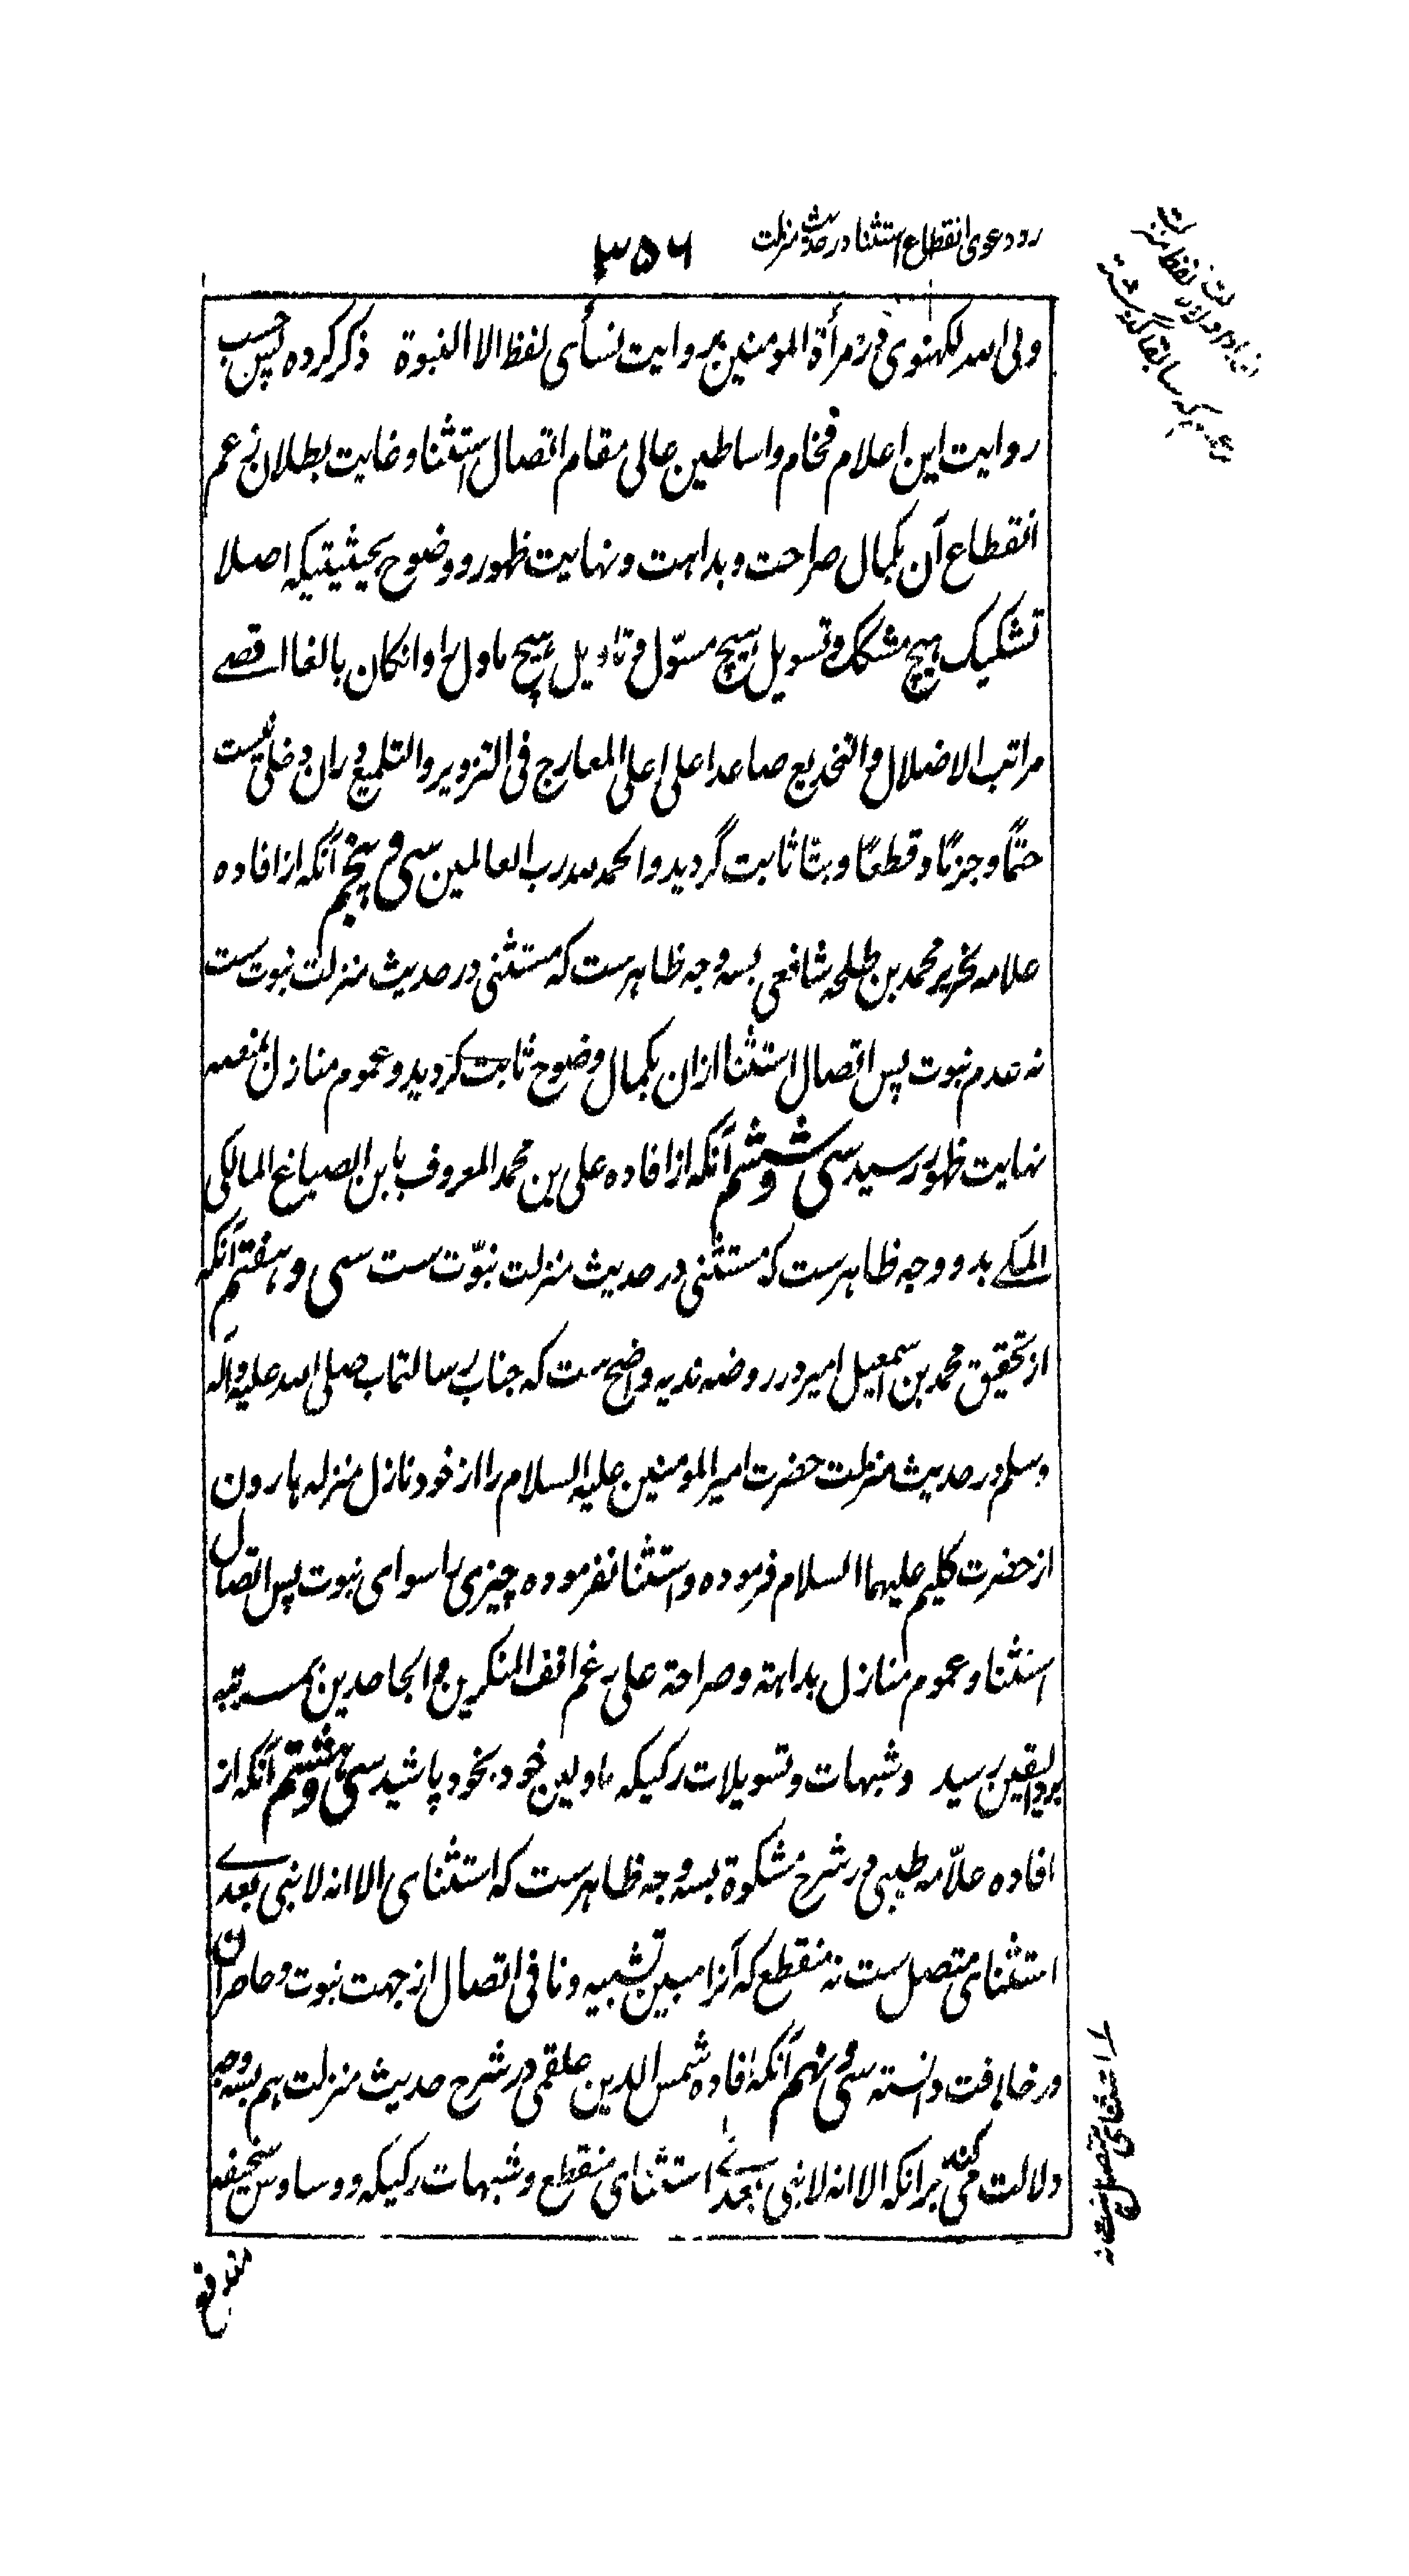 رد دعوی انقطاع استثنا در حدیث منزلت
۳۵۶
ولی اسد لکهنوی در مرأة المومنین بروایت نسأی لفظ الا النبوة ذکر کرده پس حسب
روایت این اعلام فخام و اساطین عالی مقام اتصال استثنا و غایت بطلان زعم
انقطاع آن بکمال صراحت و بداهت و نهایت ظهور و وضوح بحیثیتیکه اصلا
تشکیک هیچ مشکک و تسویل هیچ مسوّل و تاویل هیچ ماول را و انکان بالغا اقصے
مراتب الاضلال والتخدیع صاعدا علی اعلی المعارج فی التزویر والتلمیع دران دخلی نیست
حتمًا و جزمًا و قطعًا و بتًا ثابت گردید والحمد لله رب العالمین سی و پنجم آنکه از افاده
علامه نحریر محمد بن طلحه شافعی بسه وجه ظاهرست که مستثنی در حدیث منزلت نبوت ست
نه عدم نبوت پس اتصال استثنا ازان بکمال وضوح ثابت گردید و عموم منازل بمنصه
نهایت ظهور رسید سی و ششم آنکه از افاده علی بن محمد المعروف بابن الصباغ المالکی
المکے بدو وجه ظاهرست که مستثنی در حدیث منزلت نبوّت ست سی و هفتم آنکه
از تحقیق محمد بن اسمعیل امیر در روضه ندیه واضح ست که جناب رسالتماب صلی الله علیه و آله
وسلم در حدیث منزلت حضرت امیر المومنین علیه السلام را از خود نازل منزله هارون
از حضرت کلیم علیهما السلام فرموده و استثنا نفرموده چیزی را سوای نبوت پس اتصال
استثنا و عموم منازل بداهة و صراحة علی رغم انف المنکرین و الجاحدین بمرتبه
برد الیقین رسید و شبهات و تسویلات رکیکه ماولین خود بخود پاشید سی و هشتم آنکه از
افاده علاّمه طیبی در شرح مشکوة بسه وجه ظاهرست که استثنای الا انه لا نبی بعدے
استثنای متصل ست نه منقطع که آنرا مبین تشبیه و نافی اتصال از جهت نبوت و حاصر آن
در خلافت دانسته سی و نهم آنکه افاده شمس الدین علقمی در شرح حدیث منزلت هم بسه وجه
دلالت می کند برانکه الا انه لا نبی بعدے استثنای منقطع و شبهات رکیکه و وساوس سخیفه